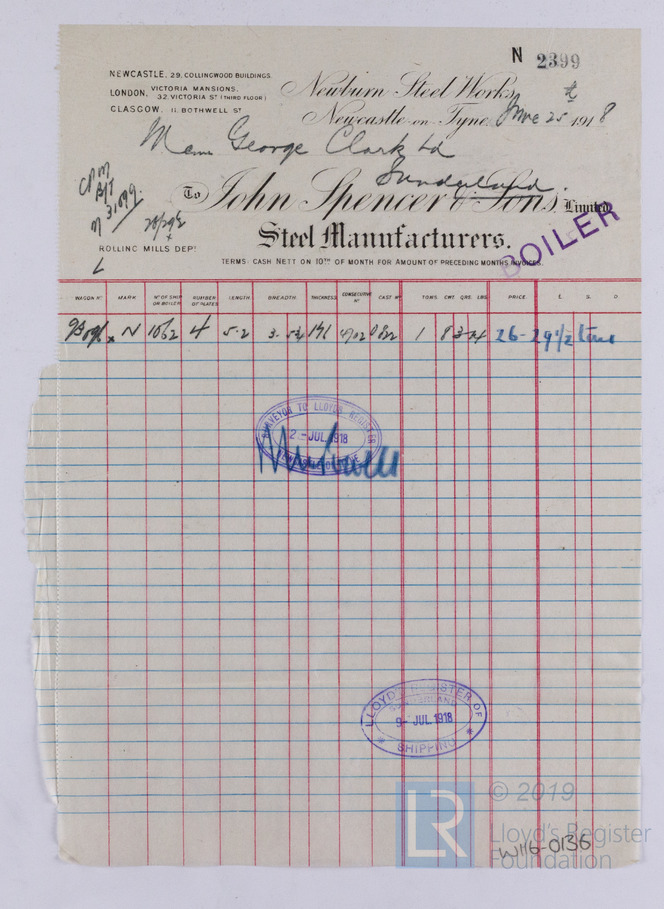 N 2399
NEWCASTLE, 29, COLLINGWOOD BUILDINGS.
LONDON, VICTORIA MANSIONS,
32, VICTORIA ST (THIRD FLOOR)
GLASGOW, 11, BOTHWELL ST
Newburn Steel Works,
Newcastle-on-Tyne, June 25th 1918
Messrs George Clark Ld
Sunderland.
To John Spencer & Sons Limited
31099
Steel Manufacturers.
BOILER
ROLLING MILLS DEPT
TERMS: CASH NETT ON 10TH OF MONTH FOR AMOUNT OF PRECEDING MONTHS INVOICES.
WAGON No MARK No OF SHIP OR BOILER NUMBER OF PLATES LENGTH BREADTH THICKNESS CONSECUTIVE No CAST No TONS CWT QRS. LBS. PRICE £. S. D.
N 1062 4 5-2 1 8 3 24 26-29 1/2 tons
SURVEYOR TO LLOYDS REGISTER
2-JUL.1918
NEWCASTLE ON TYNE
LLOYD'S REGISTER OF
SUNDERLAND
9-JUL.1918
* SHIPPING *
LR
© 2019
Lloyd's Register
Foundation
W116-0136